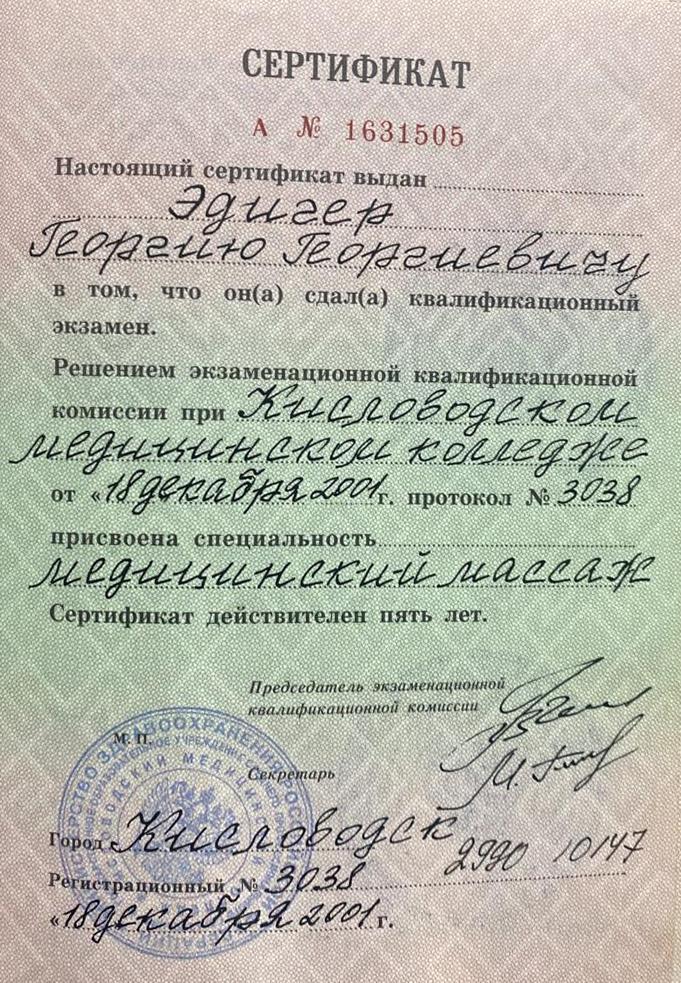 СЕРТИФИКАТ
А № 1631505
Настоящий сертификат выдан
Эдигер
Георгию Георгиевичу
в том, что он(а) сдал(а) квалификационный
экзамен.
Решением экзаменационной квалификационной
комиссии при Кисловодском
медицинском колледже
от «18 декабря 2001 г. протокол № 3038
присвоена специальность
медицинский массаж
Сертификат действителен пять лет.
Председатель экзаменационной
квалификационной комиссии
М. П.
Секретарь
Город Кисловодск
2990 10147
Регистрационный № 3038
«18 декабря 2001 г.